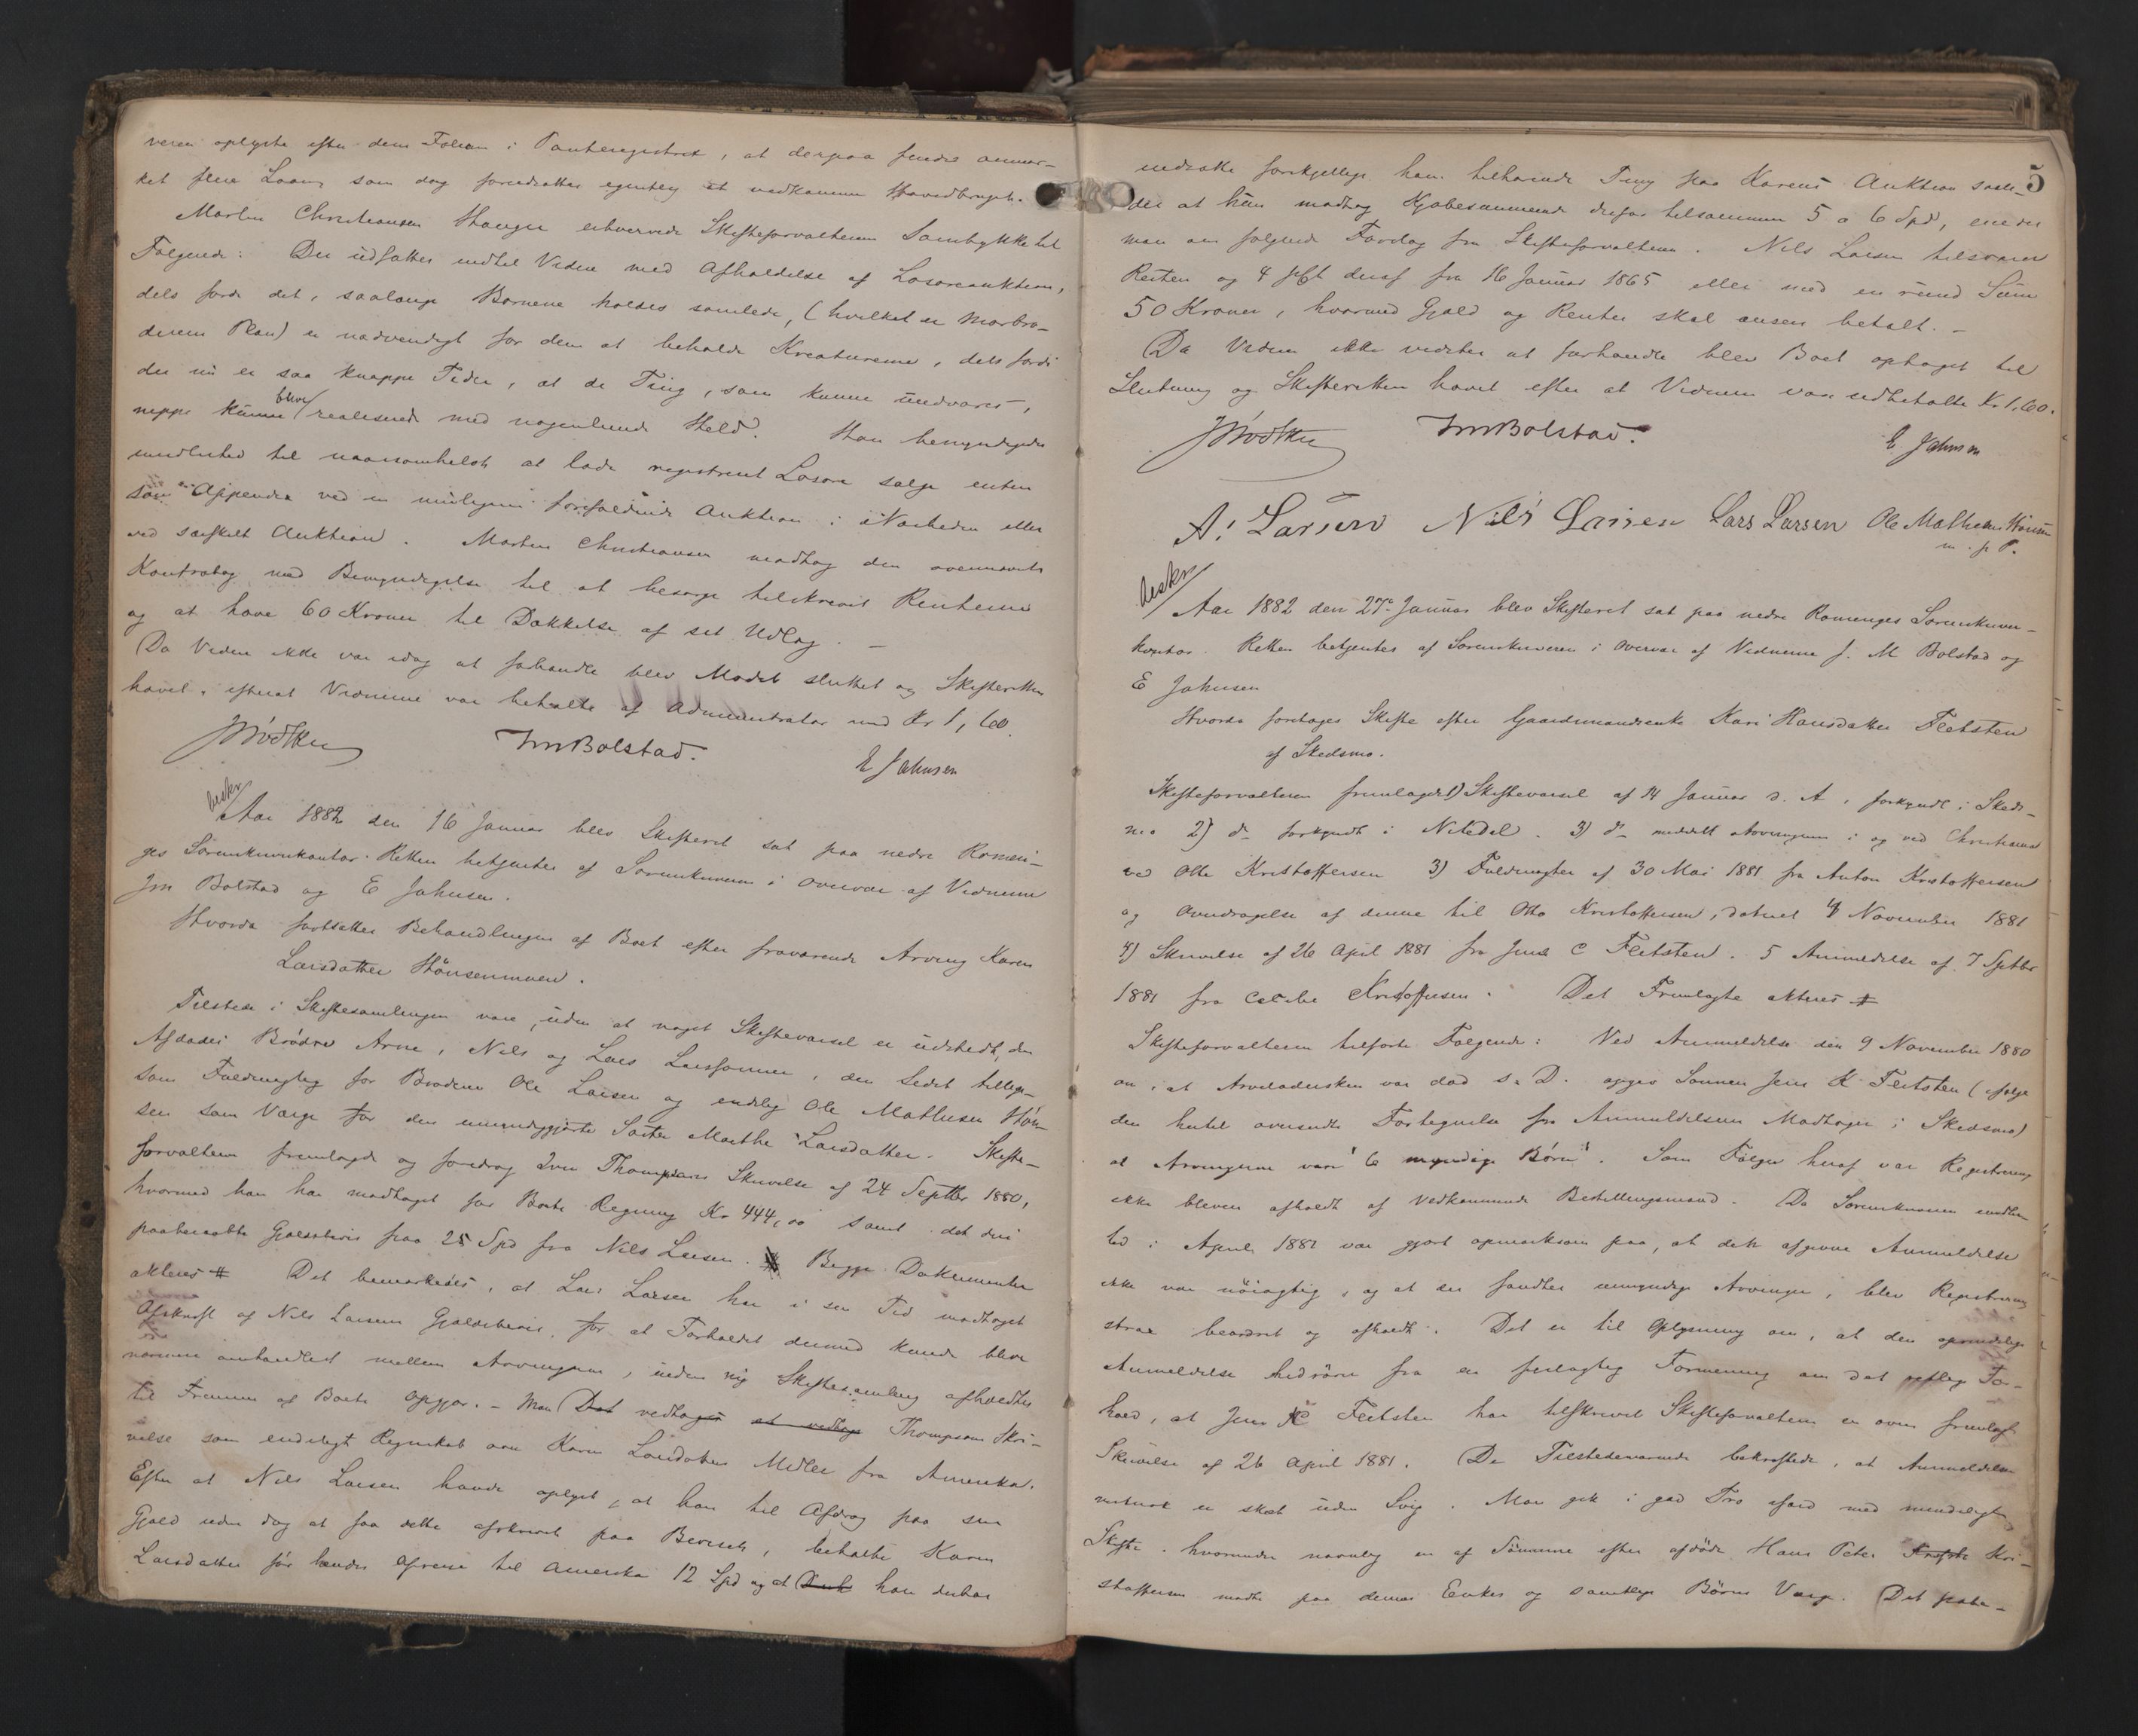 veren oplyste efter dem Folium i Panteregistret, at derpaa findes anmær-
ket flere Laan, som dog forudsættes egentlig at vedkomme Hovedbruget.
Martin Christiansen Hauger erhvervede Skifteforvalterens Samtykke til
Følgende: Der udsættes indtil Videre med Afholdelse af Løsøreauktion,
dels fordi det, saalænge Børnene holdes samlede, (hvilket er Morbro-
derens Plan) er nødvendigt for dem at beholde Kreaturerne, dels fordi
der nu er saa knappe Tider, at de Ting, som kunne undværes,
neppe kunne blive realiserede med nogenlunde Held. Han bemyndigedes
imidlertid til naarsomhelst at lade registreret Løsøre sælge enten
som en Appendix ved en muligens forefaldende Auktion i Nærheden eller
ved særskilt Auktion. Martin Christiansen modtog den ovennævnte
Kontrabog med Bemyndigelse til at besørge tilskrevet Renterne
og at hæve 60 Kroner til Dækkelse af sit Udlæg. –
Da Videre ikke var idag at forhandle blev Mødet sluttet og Skifteretten
hævet, efterat Vidnerne var betalte af Administrator med Kr 1,60.
JM Bolstad.
E Johnsen
beskr
Aar 1882 den 16 Januar blev Skifteret sat paa nedre Romeri-
ges Sorenskriverkontor. Retten betjentes af Sorenskriveren i Overvær af Vidnerne
Jm Bolstad og E Johnsen.
Hvorda fortsattes Behandlingen af Boet efter fraværende Arving Karen
Larsdatter Hønsenmoen.
Tilstede i Skiftesamlingen vare, uden at noget Skiftevarsel er udstedt, den
Afdødes Brødre Arne, Nils og Lars Larssønner, den Sidst tillige
som Fuldmægtig for Broderen Ole Larsen og endelig Ole Mathisen Høn-
sen som Værge for den umyndiggjorte Søster Marthe Larsdatter. Skifte-
forvalteren fremlagde og foredrog Iver Thompsons Skrivelse af 24 Septbr 1880,
hvormed han har modtaget for Boets Regning Kr 444,00 samt det deri
paaberaabte Gjældsbevis paa 25 Spd fra Nils Larsen. Begge Dokumenter
akteres # Det bemærkedes, at Lars Larsen har i sin Tid modtaget
Afskrift af Nils Larsens Gjældsbevis, for at Forholdet dermed kunde blive
nærmere omhandlet mellem Arvingerne, inden ny Skiftesamling afholdtes
til Fremme af Boets Opgjør. – Man Det vedtoges at vedtage Thompsons Skri-
velse som endeligt Regnskab over Karen Larsdatters Midler fra Amerika.
Efter at Nils Larsen havde oplyst, at han til Afdrag paa sin
Gjæld uden dog at faa dette afskrevet paa Beviset, betalte Karen
Larsdatter før hendes Afreise til Amerika 12 Spd og at han derhos
5
indsatte forskjellige ham tilhørende Ting paa Karens Auktion saale-
des at hun modtog Kjøbesummerne derfor tilsammen 5 a 6 Spd, enedes
man om følgende Forslag fra Skifteforvalteren. Nils Larsen tilsvarer
Resten og 4 pCt deraf fra 16 Januar 1865 eller med en rund Sum
50 Kroner, hvormed Gjæld og Renter skal ansees betalt. –
Da Videre ikke vidstes at forhandle blev Boet optaget til
Slutning og Skifteretten hævet efter at Vidnerne vare udbetalte Kr 1,60.
JM Bolstad.
E. Johnsen
A. Larsen Nils Larsen Lars Larsen Ole Mathisen Hønsen
m. p. P.
beskr
Aar 1882 den 27de Januar blev Skifteret sat paa nedre Romeriges Sorenskriver-
kontor. Retten betjentes af Sorenskriveren i Overvær af Vidnerne J. M Bolstad og
E Johnsen
Hvorda foretages Skifte efter Gaardmandsenke Kari Hansdatter Fletsten
af Skedsmo.
Skifteforvalteren fremlagde 1) Skiftevarsel af 14 Januar d. A, forkyndt i Skeds-
mo 2) do forkyndt i Nitedal. 3) do meddelt Arvingerne i og ved Christiania
ved Otto Kristoffersen 3) Fuldmagter af 30 Mai 1881 fra Anton Kristoffersen
og Overdragelse af denne til Otto Kristoffersen, dateret 4 November 1881
4) Skrivelse af 26 April 1881 fra Jens C Fletsten. 5 Anmeldelse af 7 Septbr
1881 fra Kristoffersen. Det Fremlagte akteres #
Skifteforvalteren tilførte Følgende: Ved Anmeldelse den 9 November 1880
om, at Arveladersken var død s. D. opgav Sønnen Jens K Fletsten (ifølge
den hertil oversendte Fortegnelse fra Anmeldelsens Modtager i Skedsmo)
at Arvingerne vare "6 myndige Børn". Som Følge heraf var Registrering
ikke bleven afholdt af vedkommende Bestillingsmand. Da Sorenskriveren imidler-
tid i April 1881 var gjort opmærksom paa, at den afgivne Anmeldelse
ikke var nøiagtig, og at der fandtes umyndige Arvinger, blev Registrering
strax beordret og afholdt. Det er til Oplysning om, at den oprindelige
Anmeldelse hidrører fra en feilagtig Formening om det retslige For-
hold, at Jens C Fletsten har tilskrevet Skifteforvalteren en oven fremlagt
Skrivelse af 26 April 1881. De Tilstedeværende bekræftede, at Anmeldelsen
er skeet uden Svig. Man gik i god Tro afsted med mindeligt
Skifte, hvorunder navnlig en af Sønnerne efter afdøde Hans Peter Kri-
stoffersen mødte paa dennes Enkes og samtlige Børns Vegne. Det paabe-